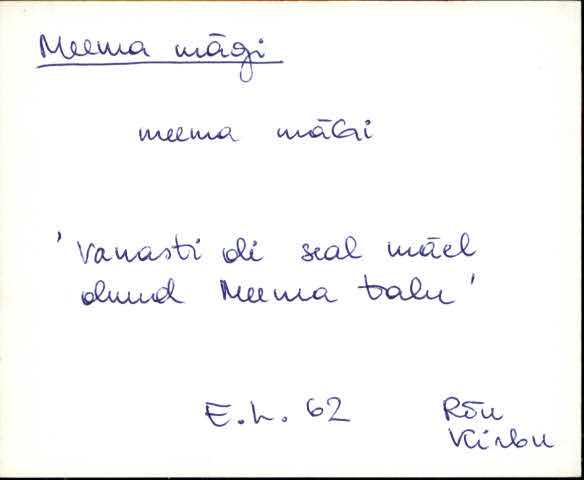 Meema mägi
meema mäGi
'Vanasti oli seal mäel
olnud Meema talu'
E.L. 62
Rõu
Kirbu